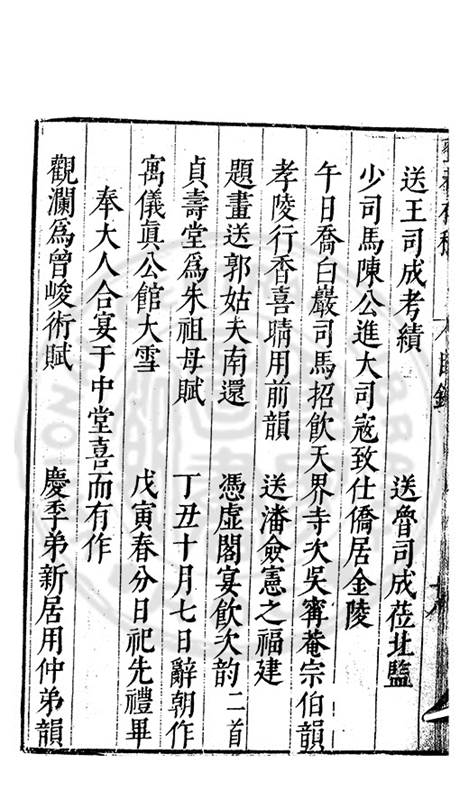 送王司成考績　送魯司成莅北監
少司馬陳公進大司寇致仕僑居金陵
午日喬白巖司馬招飲天界寺次吳寗菴宗伯韻
孝陵行香喜晴用前韻　送潘僉憲之福建
題畫送郭姑夫南還　憑虛閣宴飲次韵二首
貞壽堂爲朱祖母賦　丁丑十月七日辭朝作
寓儀真公館大雪　戊寅春分日祀先禮畢
奉大人合宴于中堂喜而有作
觀瀾爲曾峻術賦　慶季弟新居用仲弟韻